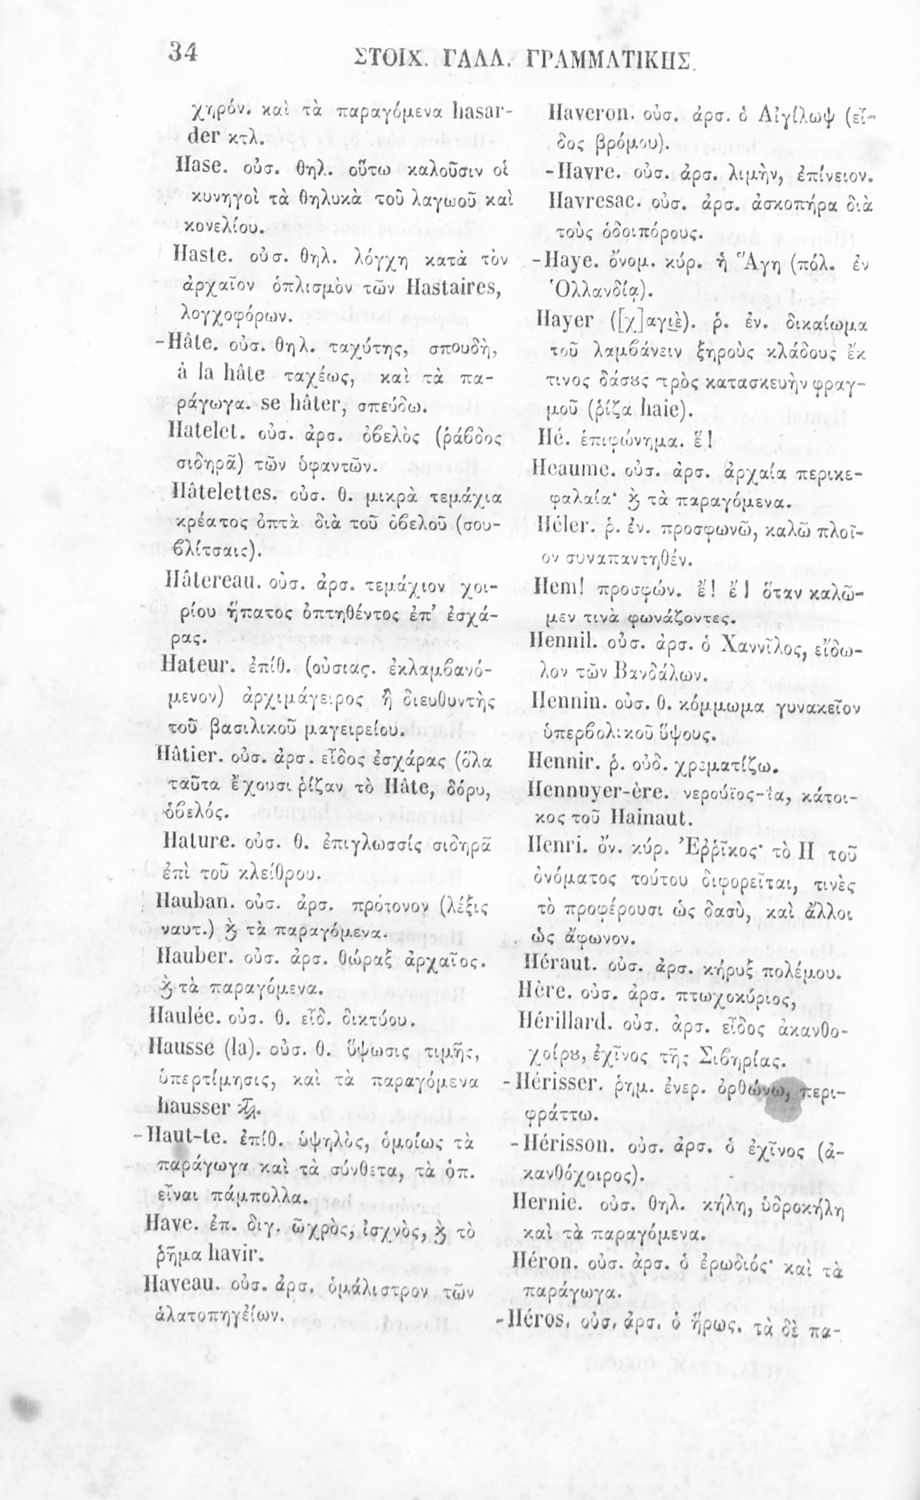 34
ΣΤΟΙΧ. ΓΑΛΛ. ΓΡΑΜΜΑΤΙΚΗΣ.
χηρόν. καὶ τὰ παραγόμενα hasar-
der κτλ.
Hase. οὐσ. θηλ. οὕτω καλοῦσιν οἱ
κυνηγοὶ τὰ θηλυκὰ τοῦ λαγωοῦ καὶ
κονελίου.
Haste. οὐσ. θηλ. λόγχη κατὰ τὸν
ἀρχαῖον ὁπλισμὸν τῶν Hastaires,
λογχοφόρων.
-Hâte. οὐσ. θηλ. ταχύτης, σπουδὴ,
à la hâte ταχέως, καὶ τὰ πα-
ράγωγα. se hâter, σπεύδω.
Hatelet. οὐσ. ἀρσ. ὀβελὸς (ῥάβδος
σιδηρᾶ) τῶν ὑφαντῶν.
Hâtelettes. οὐσ. θ. μικρὰ τεμάχια
κρέατος ὀπτὰ διὰ τοῦ ὀβελοῦ (σου-
βλίτσαις).
Hâtereau. οὐσ. ἀρσ. τεμάχιον χοι-
ρίου ἥπατος ὀπτηθέντος ἐπ' ἐσχά-
ρας.
Hateur. ἐπίθ. (οὐσιας. ἐκλαμβανό-
μενον) ἀρχιμάγειρος ἢ διευθυντὴς
τοῦ βασιλικοῦ μαγειρείου.
Hâtier. οὐσ. ἀρσ. εἶδος ἐσχάρας (ὅλα
ταῦτα ἔχουσι ῥίζαν τὸ Hâte, δόρυ,
ὀβελός.
Hature. οὐσ. θ. ἐπιγλωσσίς σιδηρᾶ
ἐπὶ τοῦ κλείθρου.
Hauban. οὐσ. ἀρσ. πρότονον (λέξις
ναυτ.) ϗ τὰ παραγόμενα.
Hauber. οὐσ. ἀρσ. θώραξ ἀρχαῖος.
ϗ τὰ παραγόμενα.
Haulée. οὐσ. θ. εἶδ. δικτύου.
Hausse (la). οὐσ. θ. ὕψωσις τιμῆς,
ὑπερτίμησις, καὶ τὰ παραγόμενα
hausser κτλ.
-Haut-te. ἐπίθ. ὑψηλὸς, ὁμοίως τὰ
παράγωγα καὶ τὰ σύνθετα, τὰ ὁπ.
εἶναι πάμπολλα.
Have. ἐπ. διγ. ὠχρὸς, ἰσχνὸς, ϗ τὸ
ῥῆμα havir.
Haveau. οὐσ. ἀρσ. ὁμάλιστρον τῶν
ἁλατοπηγείων.
Haveron. οὐσ. ἀρσ. ὁ Αἰγίλωψ (εἶ-
δος βρόμου).
-Havre. οὐσ. ἀρσ. λιμὴν, ἐπίνειον.
Havresac. οὐσ. ἀρσ. ἀσκοπήρα διὰ
τοὺς ὁδοιπόρους.
-Haye. ὄνομ. κύρ. ἡ Ἅγη (πόλ. ἐν
Ὁλλανδίᾳ).
Hayer ([χ]αγιὲ). ῥ. ἐν. δικαίωμα
τοῦ λαμβάνειν ξηροὺς κλάδους ἔκ
τινος δάσȣς πρὸς κατασκευὴν φραγ-
μοῦ (ῥίζα haie).
Hé. ἐπιφώνημα. ἒ!
Heaume. οὐσ. ἀρσ. ἀρχαία περικε-
φαλαία· ϗ τὰ παραγόμενα.
Héler. ῥ. ἐν. προσφωνῶ, καλῶ πλοῖ-
ον συναπαντηθέν.
Hem! προσφών. ἒ! ἒ! ὅταν καλῶ-
μεν τινὰ φωνάζοντες.
Hennil. οὐσ. ἀρσ. ὁ Χαννῖλος, εἴδω-
λον τῶν Βανδάλων.
Hennin. οὐσ. θ. κόμμωμα γυνακεῖον
ὑπερβολικοῦ ὕψους.
Hennir. ῥ. οὐδ. χρεματίζω.
Hennuyer-ère. νερούϊος-ΐα, κάτοι-
κος τοῦ Hainaut.
Henri. ὄν. κύρ. Ἐῤῥῖκος· τὸ H τοῦ
ὀνόματος τούτου διφορεῖται, τινὲς
τὸ προφέρουσι ὡς δασὺ, καὶ ἄλλοι
ὡς ἄφωνον.
Héraut. οὐσ. ἀρσ. κήρυξ πολέμου.
Hère. οὐσ. ἀρσ. πτωχοκύριος,
Hérillard. οὐσ. ἀρσ. εἶδος ἀκανθο-
χοίρȣ, ἐχῖνος τῆς Σιβηρίας.
-Hérisser. ῥημ. ἐνερ. ὀρθώνω, περι-
φράττω.
-Hérisson. οὐσ. ἀρσ. ὁ ἐχῖνος (ἀ-
κανθόχοιρος).
Hernie. οὐσ. θηλ. κήλη, ὑδροκήλη
καὶ τὰ παραγόμενα.
Héron. οὐσ. ἀρσ. ὁ ἐρωδιός· καὶ τὰ
παράγωγα.
-Héros, οὐσ. ἀρσ. ὁ ἥρως. τὰ δὲ πα-